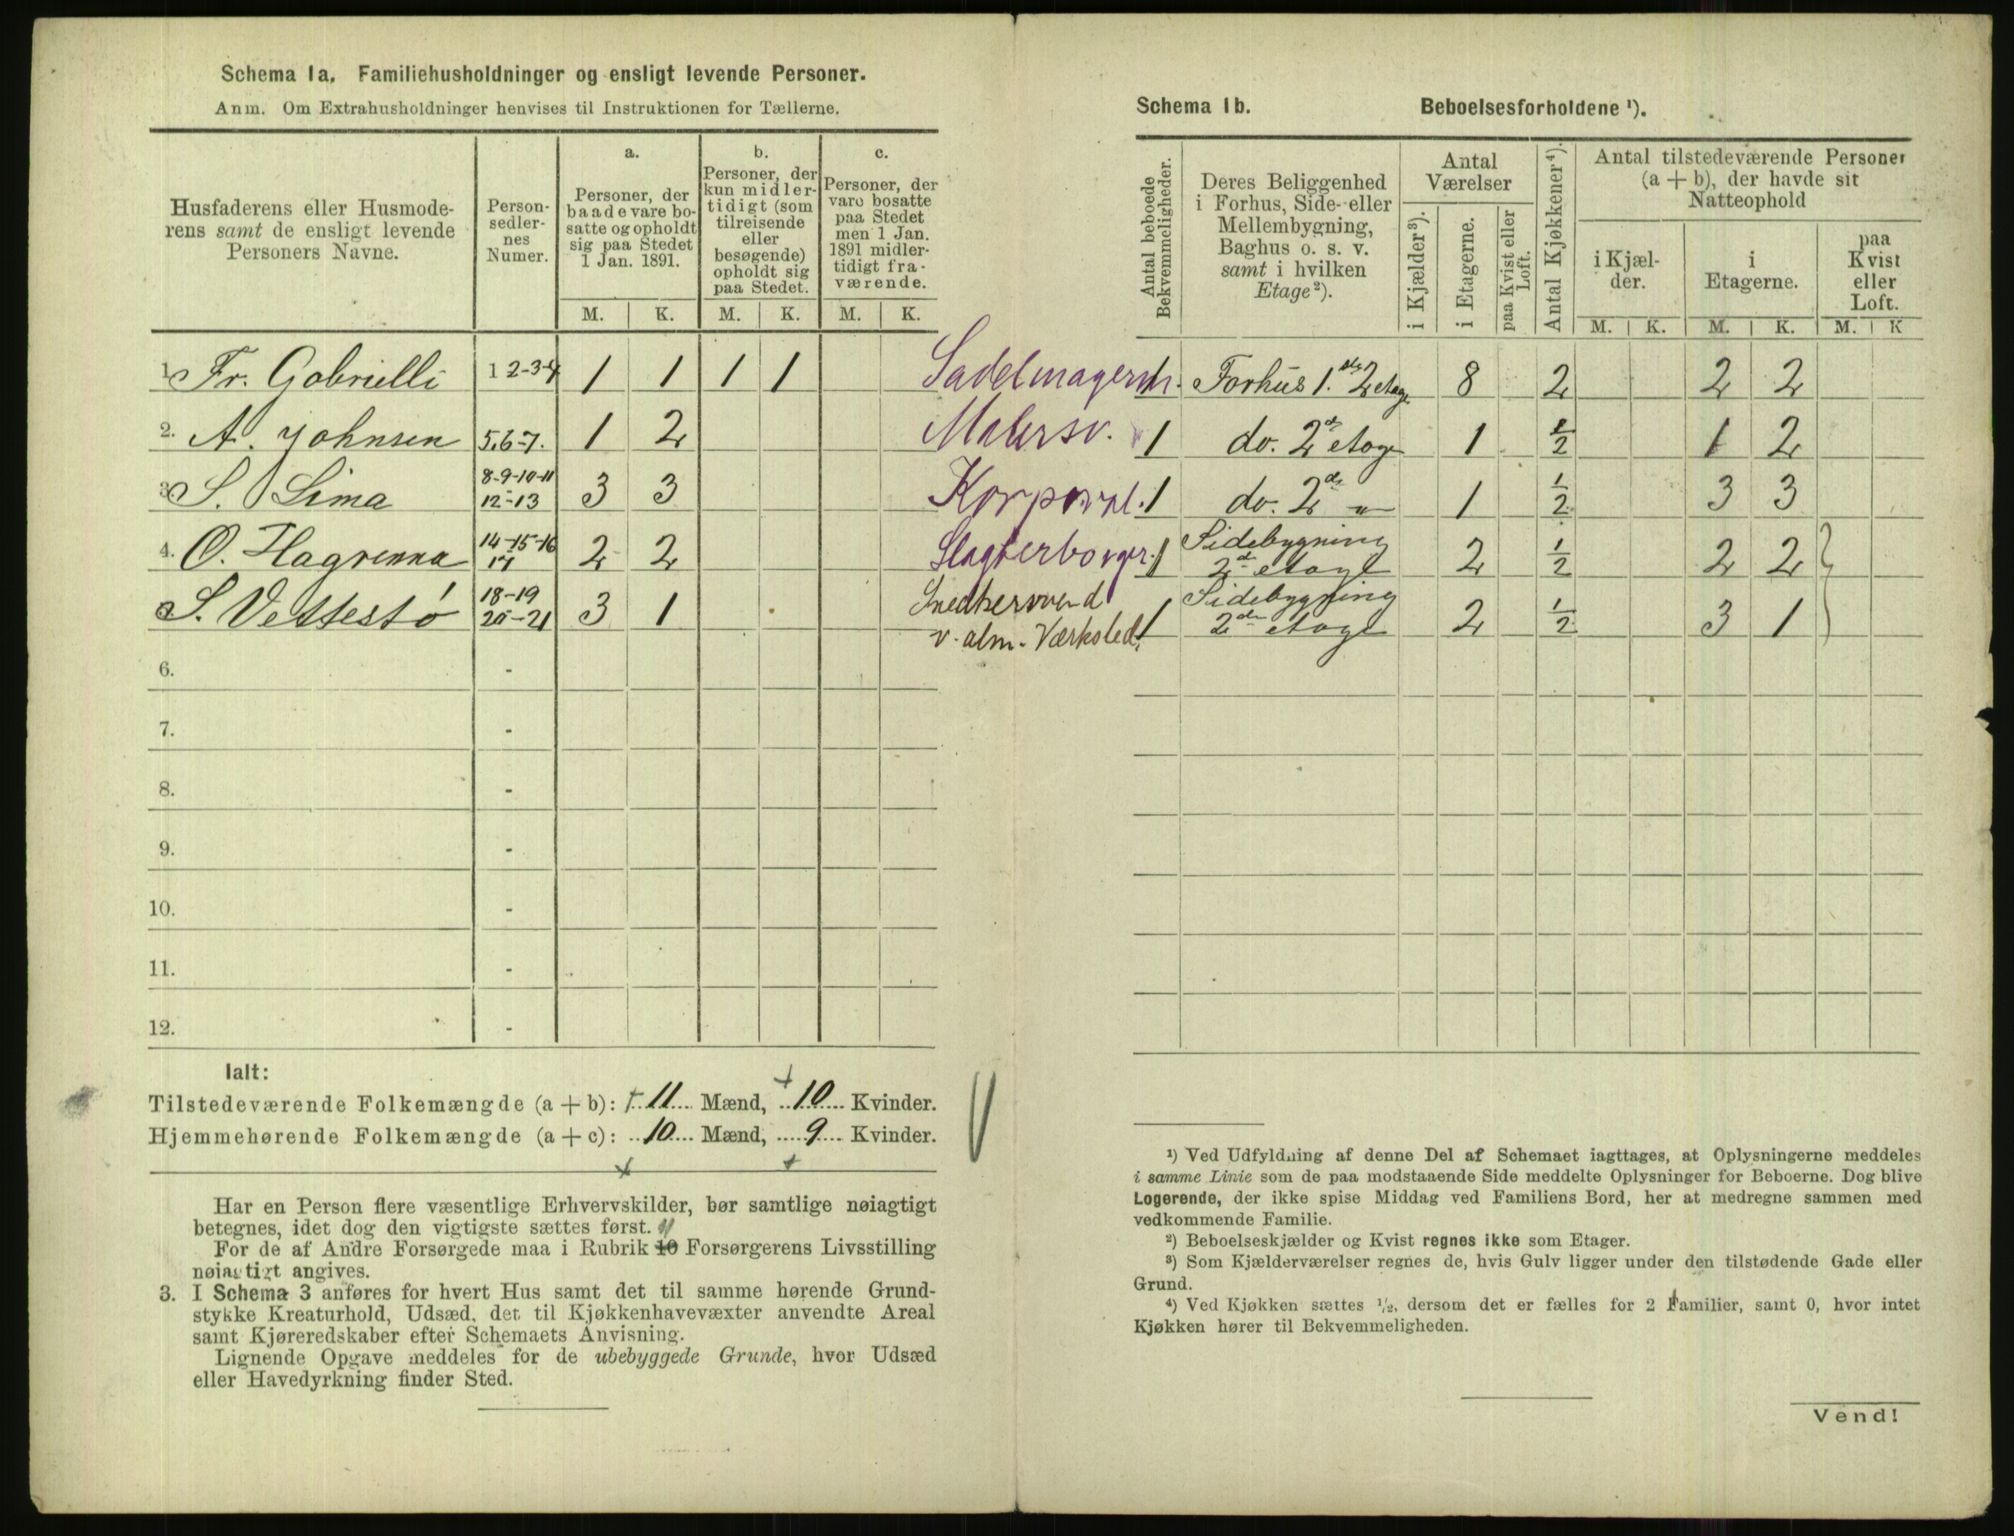 Schema 1a. Familiehusholdninger og ensligt levende Personer.
Anm. Om Extrahusholdninger henvises til Instruktionen for Tællerne.
Husfaderens eller Husmode-
rens samt de ensligt levende
Personers Navne.
Person-
sedler-
nes
Numer.
a.
Personer, der
baade vare bo-
satte og opholdt
sig paa Stedet
1 Jan. 1891.
b.
Personer, der
kun midler-
tidigt (som
tilreisende
eller
besøgende)
opholdt sig
paa Stedet.
c.
Personer, der
vare bosatte
paa Stedet
men 1 Jan.
1891 midler-
tidigt fra-
værende.
M. K. M. K. M. K.
1. Fr. Gabrielli 1 2-3-4 1 1 1 1 Sadelmagerm.
2. A. Johnsen 5.6-7. 1 2 Malersv.
3. S. Lima 8-9-10-11 12-13 3 3 Korporal.
4. O. Hagrenna 14-15-16 17 2 2 Slagterborger.
S. Vettestö 18-19 20-21 3 1 Snedkersvend
v. alm. Værksted.
6. -
7. -
8. -
9. -
10. -
11. -
12. -
Ialt:
Tilstedeværende Folkemængde (a + b): 11 Mænd, 10 Kvinder.
Hjemmehørende Folkemængde (a + c): 10 Mænd, 9 Kvinder.
Har en Person flere væsentlige Erhvervskilder, bør samtlige nøiagtigt
betegnes, idet dog den vigtigste sættes først.
For de af Andre Forsørgede maa i Rubrik 10 Forsørgerens Livsstilling
nøiagtigt angives.
3. I Schema 3 anføres for hvert Hus samt det til samme hørende Grund-
stykke Kreaturhold, Udsæd, det til Kjøkkenhavevæxter anvendte Areal
samt Kjøreredskaber efter Schemaets Anvisning.
Lignende Opgave meddeles for de ubebyggede Grunde, hvor Udsæd
eller Havedyrkning finder Sted.
Schema 1b. Beboelsesforholdene ¹).
Antal beboede
Bekvemmeligheder.
Deres Beliggenhed
i Forhus, Side- eller
Mellembygning,
Baghus o. s. v.
samt i hvilken
Etage²).
Antal
Værelser
i Kjælder³).
i Etagerne.
paa Kvist eller
Loft.
Antal Kjøkkener⁴).
Antal tilstedeværende Personer
(a + b), der havde sit
Natteophold
i Kjæl-
der.
i
Etagerne.
paa
Kvist
eller
Loft.
M. K. M. K. M. K
1 Forhus 1. 2 etage 8 2 2 2
1 do. 2d etage 1 1/2 1 2
1 do. 2de " 1 1/2 3 3
1 Sidebygning
2d etage 2 1/2 2 2
1 Sidebygning
2den etage 2 1/2 3 1
¹) Ved Udfyldning af denne Del af Schemaet iagttages, at Oplysningerne meddeles
i samme Linie som de paa modstaaende Side meddelte Oplysninger for Beboerne. Dog blive
Logerende, der ikke spise Middag ved Familiens Bord, her at medregne sammen med
vedkommende Familie.
²) Beboelseskjælder og Kvist regnes ikke som Etager.
³) Som Kjælderværelser regnes de, hvis Gulv ligger under den tilstødende Gade eller
Grund.
⁴) Ved Kjøkken sættes ½, dersom det er fælles for 2 Familier, samt 0, hvor intet
Kjøkken hører til Bekvemmeligheden.
Vend!